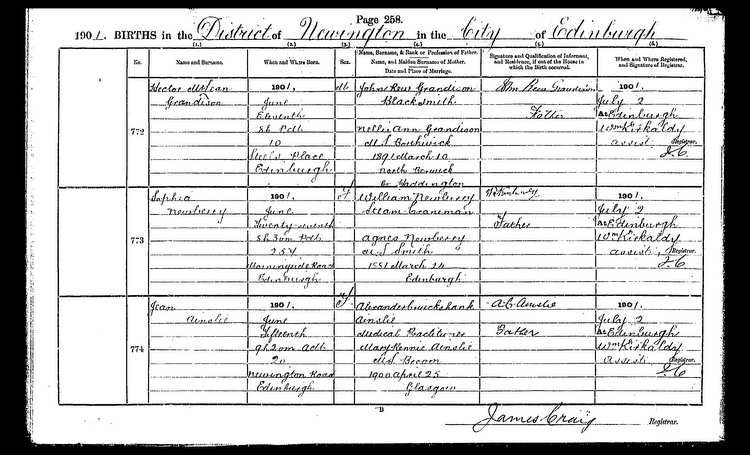 Page 258.
1901. BIRTHS in the District of Newington in the City of Edinburgh
(1.) (2.) (3.) (4.) (5.) (6.)
No. Name and Surname. When and Where Born. Sex. Name, Surname, & Rank or Profession of Father. Name, and Maiden Surname of Mother. Date and Place of Marriage. Signature and Qualification of Informant, and Residence, if out of the House in which the Birth occurred. When and Where Registered, and Signature of Registrar.
772
Hector McLean
Grandison
1901
June
Eleventh
8h PM
10
Place
Edinburgh
M
John Grandison
Blacksmith
Nellie Ann Grandison
M.S. Borthwick
1891 March 10
North Berwick
Haddington
Grandison
Father
1901.
July 2
At Edinburgh
Wm Kirkaldy
Assist. Registrar.
J.C.
773
Sophia
Newberry
1901.
June
Twenty-seventh
5h 30m PM
254
Morningside Road
Edinburgh
F
William Newberry
Steam Craneman
Agnes Newberry
M.S. Smith
March 24
Edinburgh
Father
1901.
July 2
At Edinburgh
Wm Kirkaldy
Assist. Registrar.
J.C.
774
Jean
Ainslie
1901.
June
Fifteenth
9h 20m AM
20
Newington Road
Edinburgh
F
Alexander Cruickshank
Ainslie
Medical Practitioner
Mary Rennie Ainslie
M.S. Broom
1900 April 25
Glasgow
A.C. Ainslie
Father
1901.
July 2
At Edinburgh
Wm Kirkaldy
Assist. Registrar.
J.C.
B
James Craig Registrar.